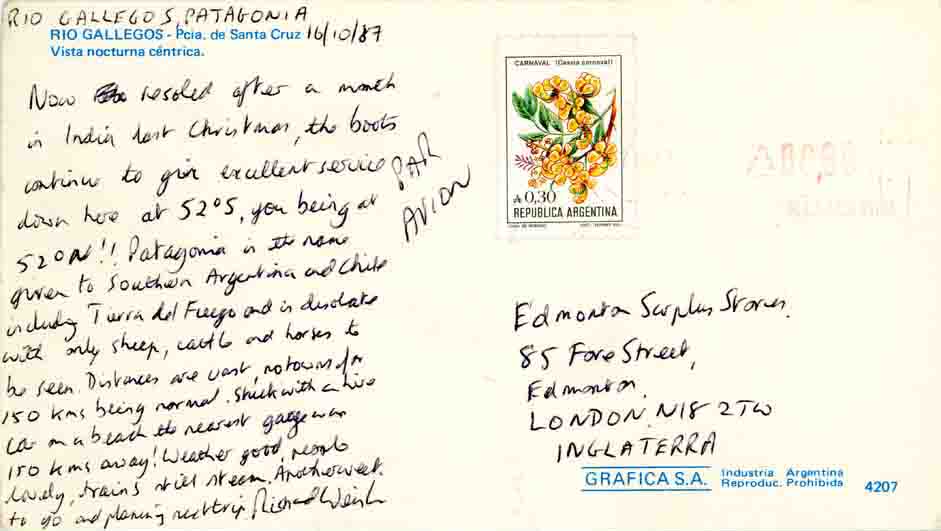 RIO GALLEGOS, PATAGONIA
RIO GALLEGOS - Pcia. de Santa Cruz 16/10/87
Vista nocturna céntrica.
Now resoled after a month
in India last Christmas, the boots
continue to give excellent service
down here at 52°S, you being at
52°N!! Patagonia is the name
given to Southern Argentina and Chile
including Tierra del Fuego and is desolate
with only sheep, cattle and horses to
be seen. Distances are vast, no towns for
150 kms being normal. Stuck with a hire
car on a beach the nearest garage was
150 kms away! Weather good, people
lovely, trains still steam. Another week
to go and planning next trip. Richard
PAR
AVION
CARNAVAL (Cassia carnaval)
A 0,30
REPUBLICA ARGENTINA
Edmonton Surplus Stores.
85 Fore Street,
Edmonton.
LONDON. N18 2TW
INGLATERRA
GRAFICA S.A. Industria Argentina
Reproduc. Prohibida 4207